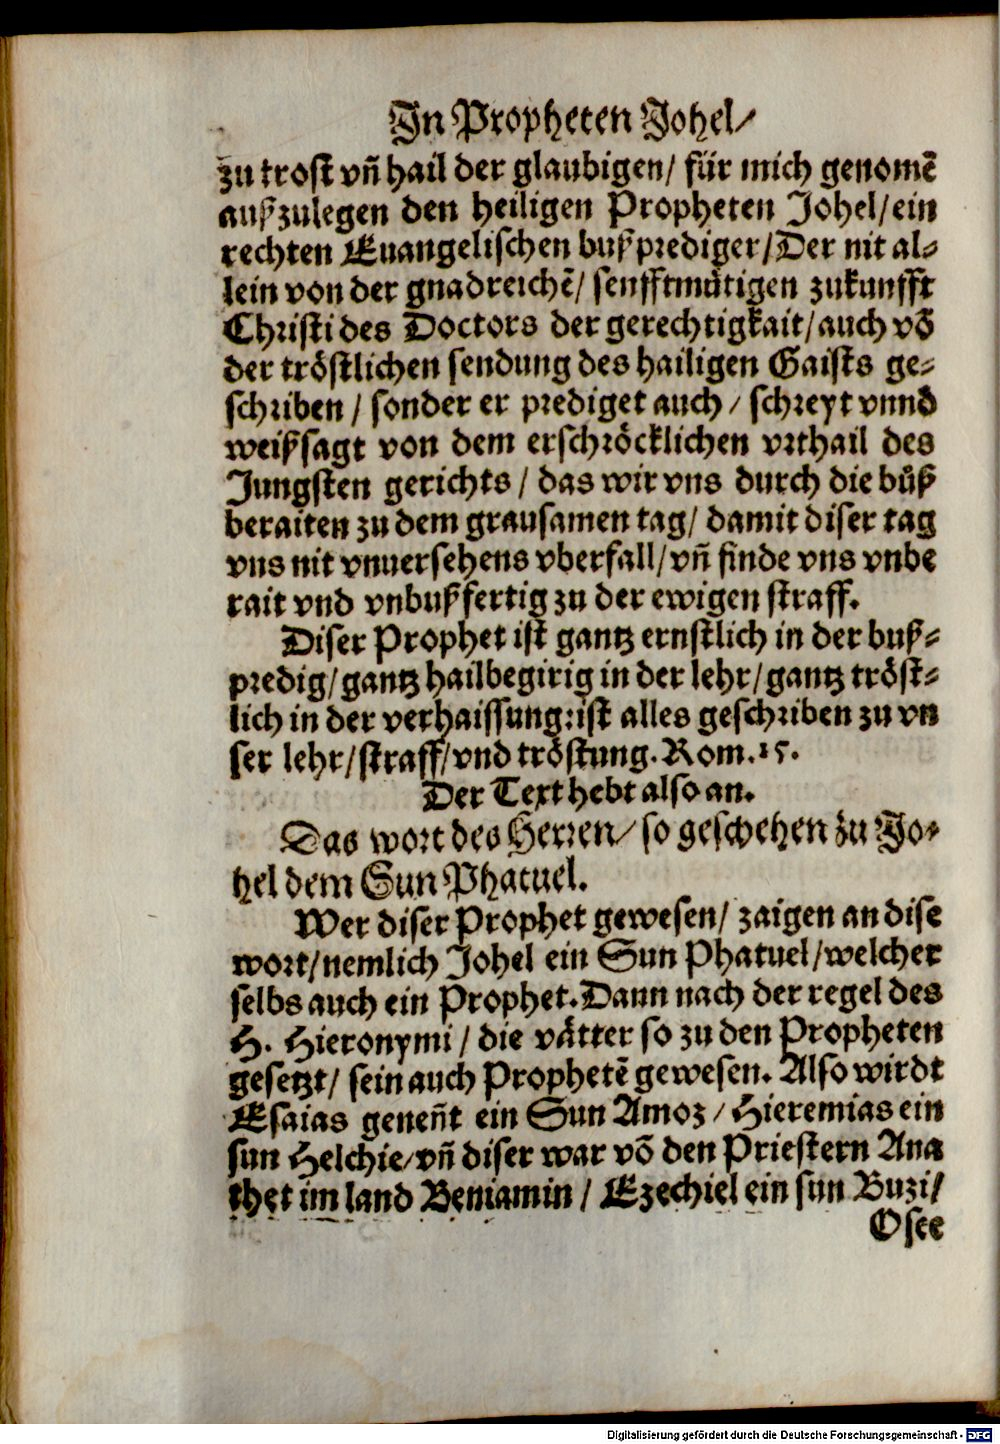 In Propheten Johel/
zu trost vñ hail der glaubigen/ für mich genomẽ
außzulegen den heiligen Propheten Johel/ein
rechten Euangelischen bußprediger/Der nit al-
lein von der gnadreichẽ/ senfftmůtigen zukunfft
Christi des Doctors der gerechtigkait/auch võ
der tröstlichen sendung des hailigen Gaists ge-
schriben / sonder er prediget auch/ schreyt vnnd
weißsagt von dem erschröcklichen vrthail des
Jungsten gerichts / das wir vns durch die bůß
beraiten zu dem grausamen tag/ damit diser tag
vns nit vnuersehens vberfall/vñ finde vns vnbe
rait vnd vnbußfertig zu der ewigen straff.
Diser Prophet ist gantz ernstlich in der buß-
predig/gantz hailbegirig in der lehr/gantz tröst-
lich in der verhaissung:ist alles geschriben zu vn
ser lehr/straff/vnd tröstung. Rom.15.
Der Text hebt also an.
Das wort des Herren/ so geschehen zu Jo-
hel dem Sun Phatuel.
Wer diser Prophet gewesen/ zaigen an dise
wort/nemlich Johel ein Sun Phatuel/welcher
selbs auch ein Prophet. Dann nach der regel des
H. Hieronymi / die vätter so zu den Propheten
gesetzt/ sein auch Prophetẽ gewesen. Also wirdt
Esaias geneñt ein Sun Amoz / Hieremias ein
sun Helchie/vñ diser war võ den Priestern Ana
thet im land Beniamin / Ezechiel ein sun Buzi/
Osee
Digitalisierung gefördert durch die Deutsche Forschungsgemeinschaft - DFG